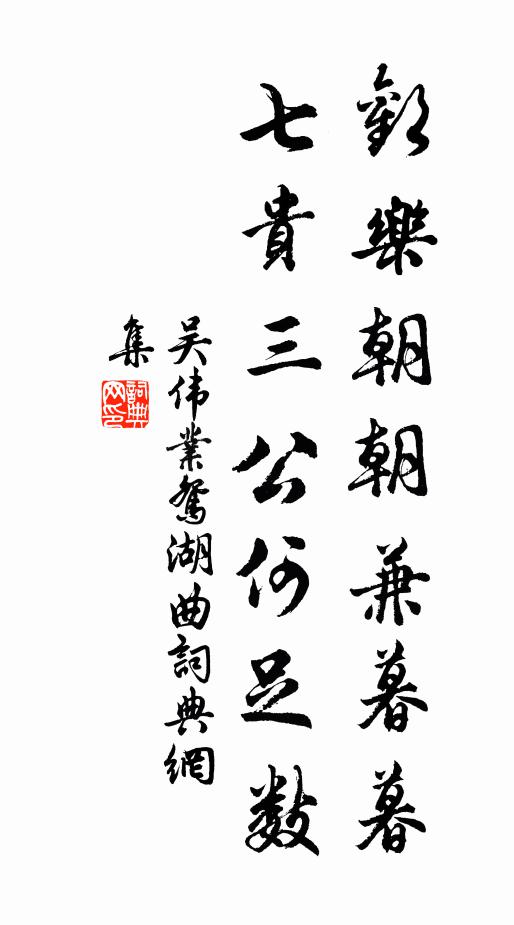 歡樂朝朝兼暮暮
七貴三公何足數
吴伟業鴛湖曲詞典網
集
詞典
网印